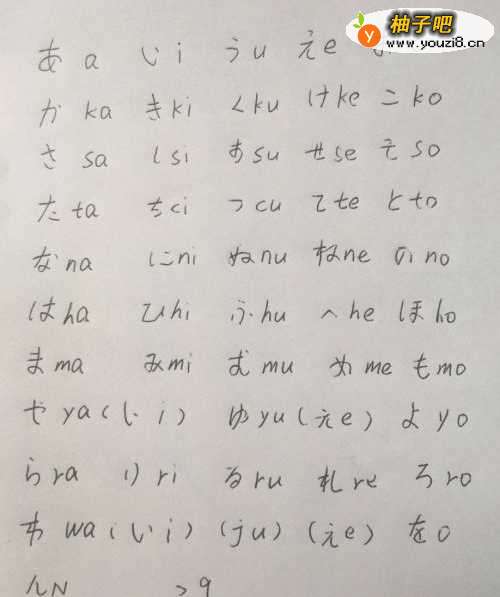 柚子吧
www.youzi8.cn
あ a い i う u え e
か ka き ki く ku け ke こ ko
さ sa し si す su せ se そ so
た ta ち ci つ cu て te と to
な na に ni ぬ nu ね ne の no
は ha ひ hi ふ hu へ he ほ ho
ま ma み mi む mu め me も mo
や ya (い i) ゆ yu (え e) よ yo
ら ra り ri る ru れ re ろ ro
わ wa (い i) (ju) (え e) を o
ん N っ q